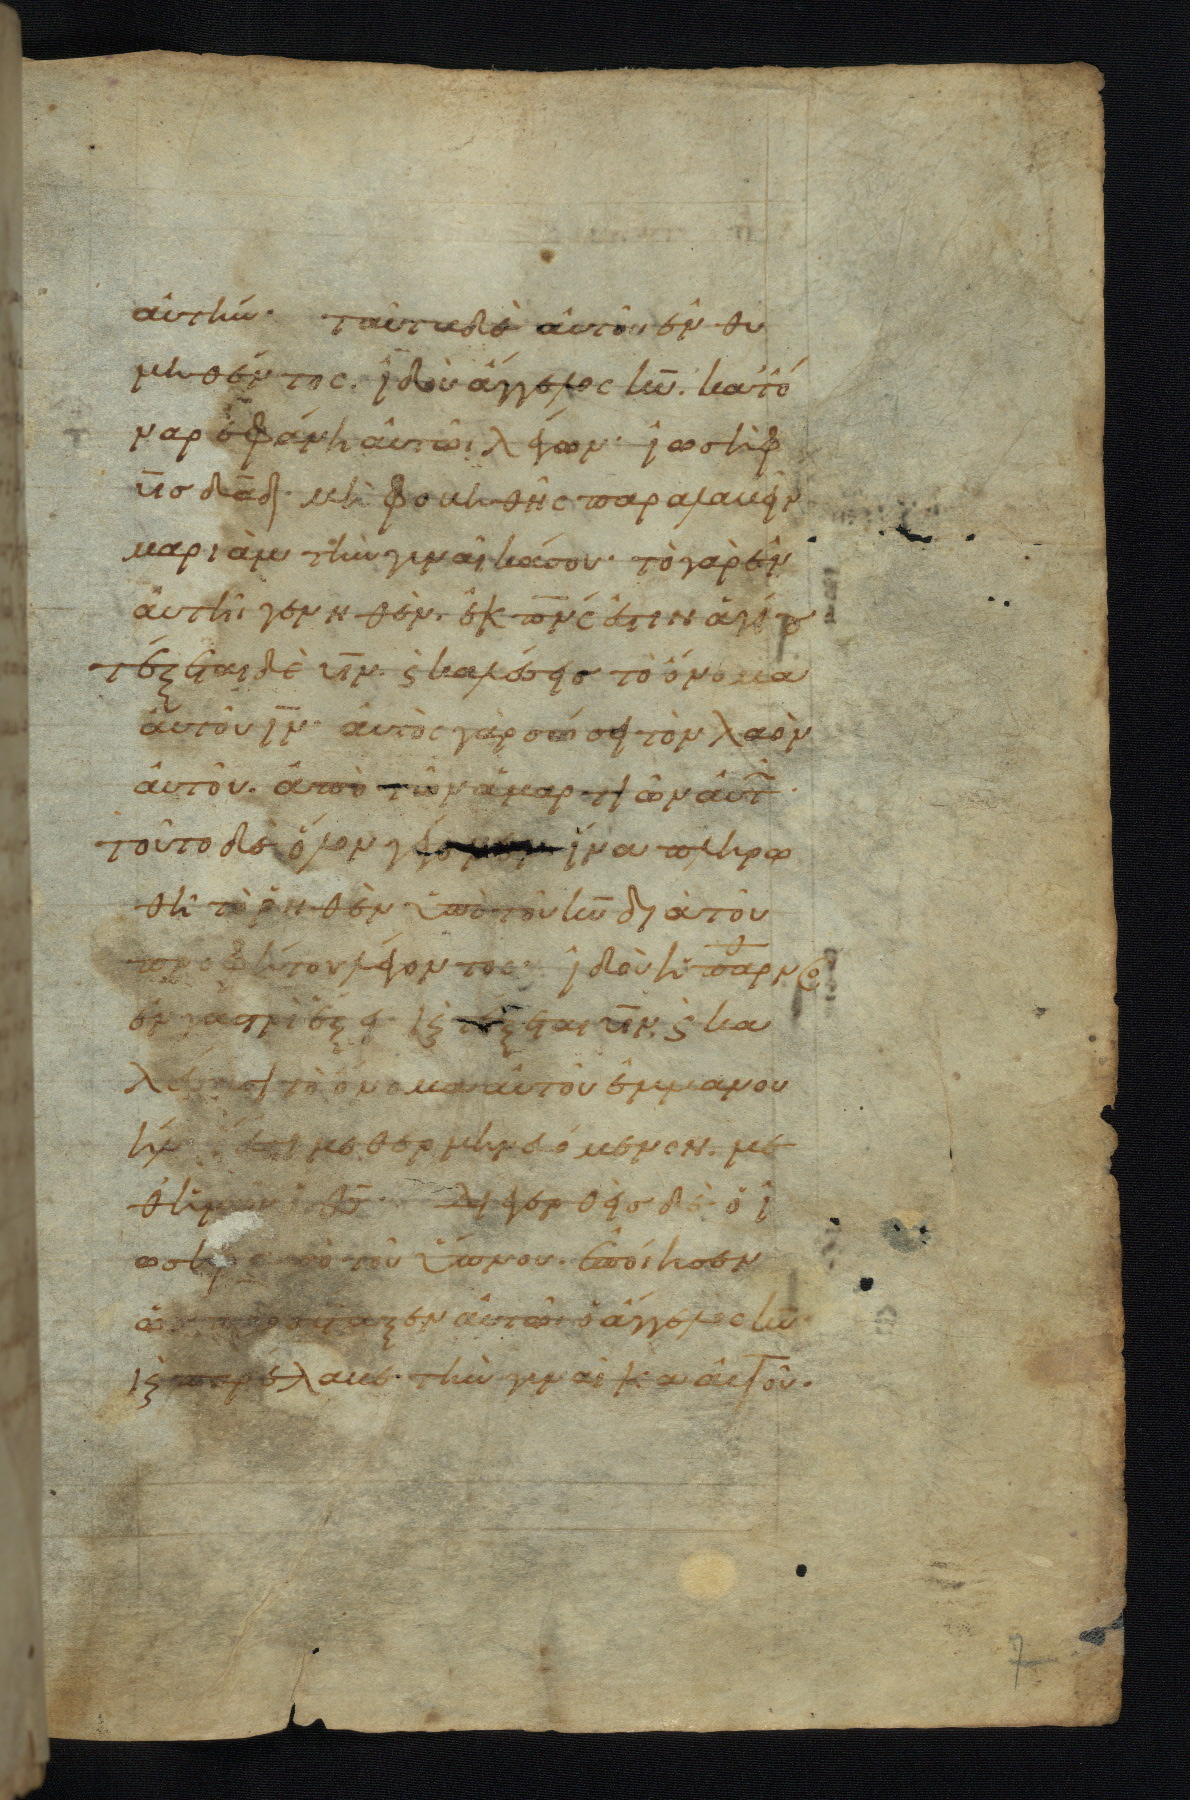 αὐτήν. ταῦτα δὲ αὐτοῦ ἐνθυ
μηθέντος. ἰδοὺ ἄγγελος κυ̅. κατ᾽ ὄ
ναρ ἐφάνη αὐτῶ λέγων. ἰωσὴφ
υι̅ὸσ δα̅δ. μὴ φοβηθῆς παραλαβεῖν
μαριὰμ τὴν γυναῖκά σου. τὸ γὰρ ἐν
αὐτῆ γεννηθὲν. ἐκ πν̅ς ἐστιν ἁγίου
τέξεται δὲ υν̅. ϗ καλέσεισ τὸ ὄνομα
αὐτοῦ ιν̅. αὐτὸς γὰρ σώσει τὸν λαὸν
αὐτοῦ. ἀπὸ τῶν ἁμαρτιῶν αὐτῶν
τοῦτο δὲ ὅλον γέγονεν ἵνα πληρω
θῆ τὸ ῥηθὲν ὑπὸ τοῦ κυ̅ διὰ τοῦ
προφήτου λέγοντος. ἰδοὺ ἡ παρθν̅ος
ἐν γαστρὶ ἕξει ϗ τέξεται υν̅. ϗ κα
λέσεισ τὸ ὄνομα αὐτοῦ ἐμμανου
ήλ ἐστι μεθερμηνεόμενον. με
θ᾽ ἡμῶν ὁ θς̅. διεγερθεὶσ δὲ ὁ ἰ
ωσὴφ ἀπὸ τοῦ ὕπνου. ἐποίησεν
ὡς προσέταξεν αὐτῶ ὁ ἄγγελος κυ̅.
ϗ παρέλαβε. τὴν γυναῖκα αὐτοῦ.
7